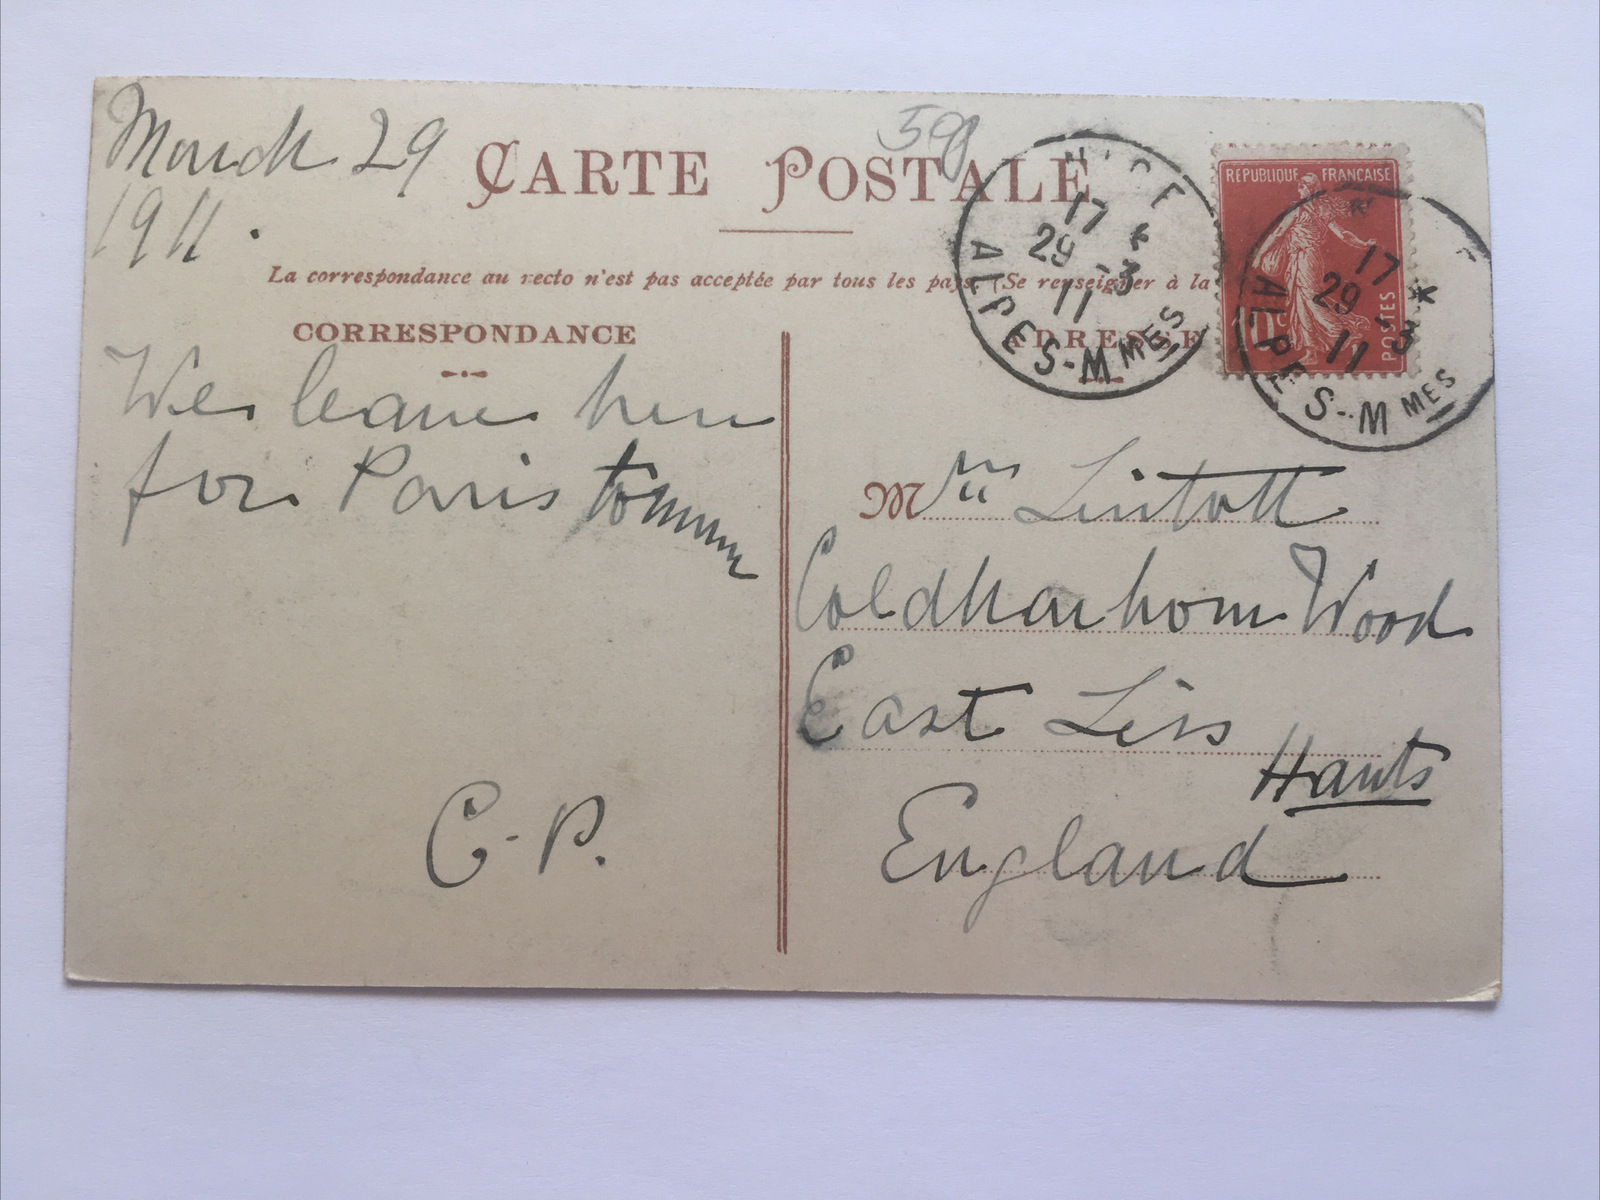 March 29
1911.
598
CARTE POSTALE
La correspondance au recto n'est pas acceptée par tous les pays (Se renseigner à la
CORRESPONDANCE
We leave here
for Paris tomorrow
C.P.
NICE
17
29 - 3
11
ALPES-MMES
REPUBLIQUE FRANÇAISE
10c
POSTES
17
29 - 3
11
ALPES-MMES
ADRESSE
Mrs Lintott
Coldharbour Wood
East Liss
Hants
England